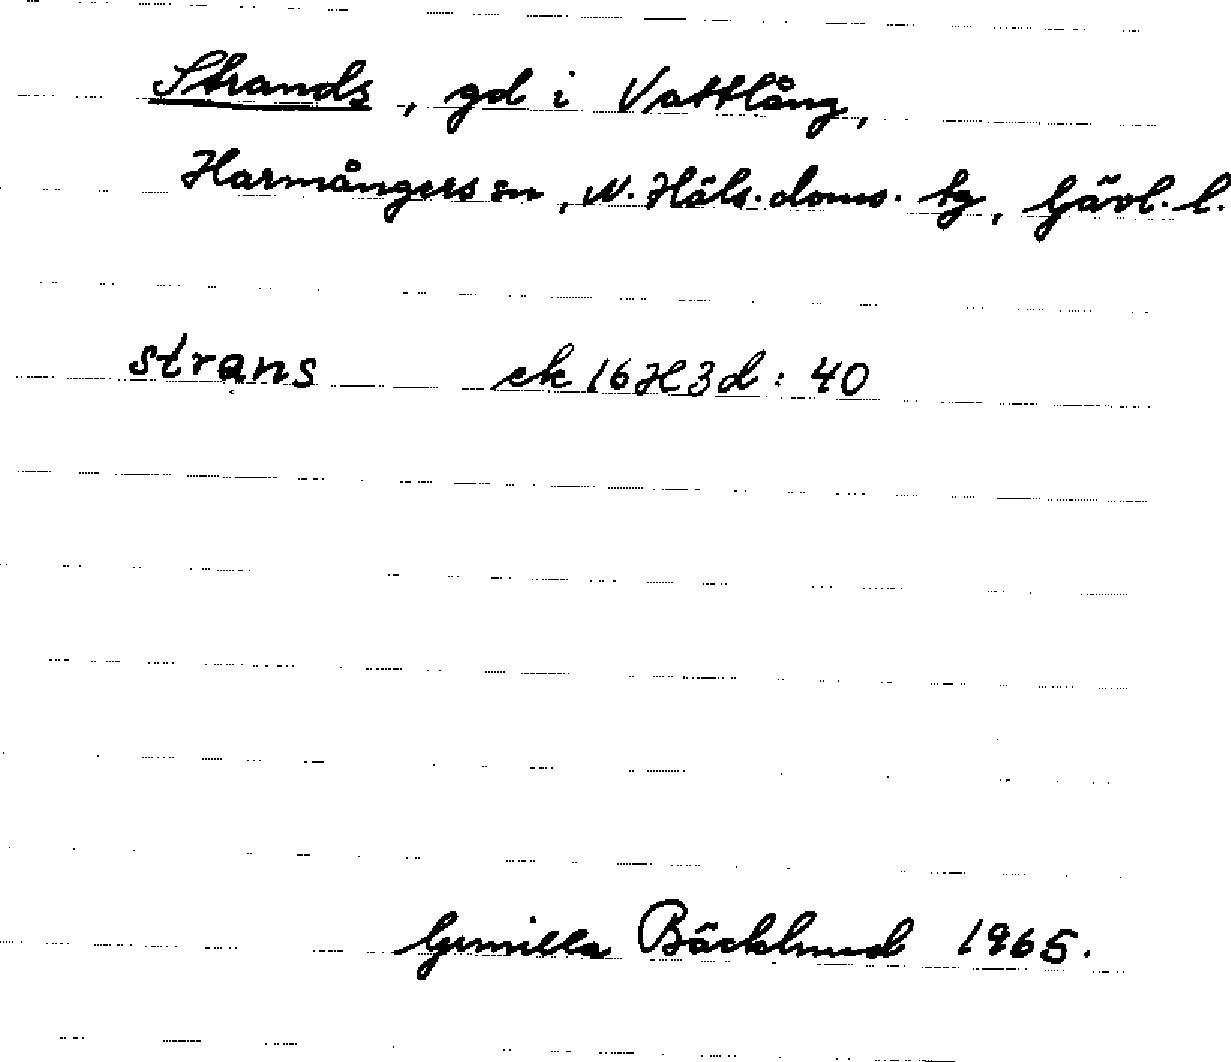 Strands, gd i Vattlång,
Harmångers sn, N. Häls. doms. tg, Gävl. l.
strans ek 16H3d: 40
Gunilla Bäcklund 1965.